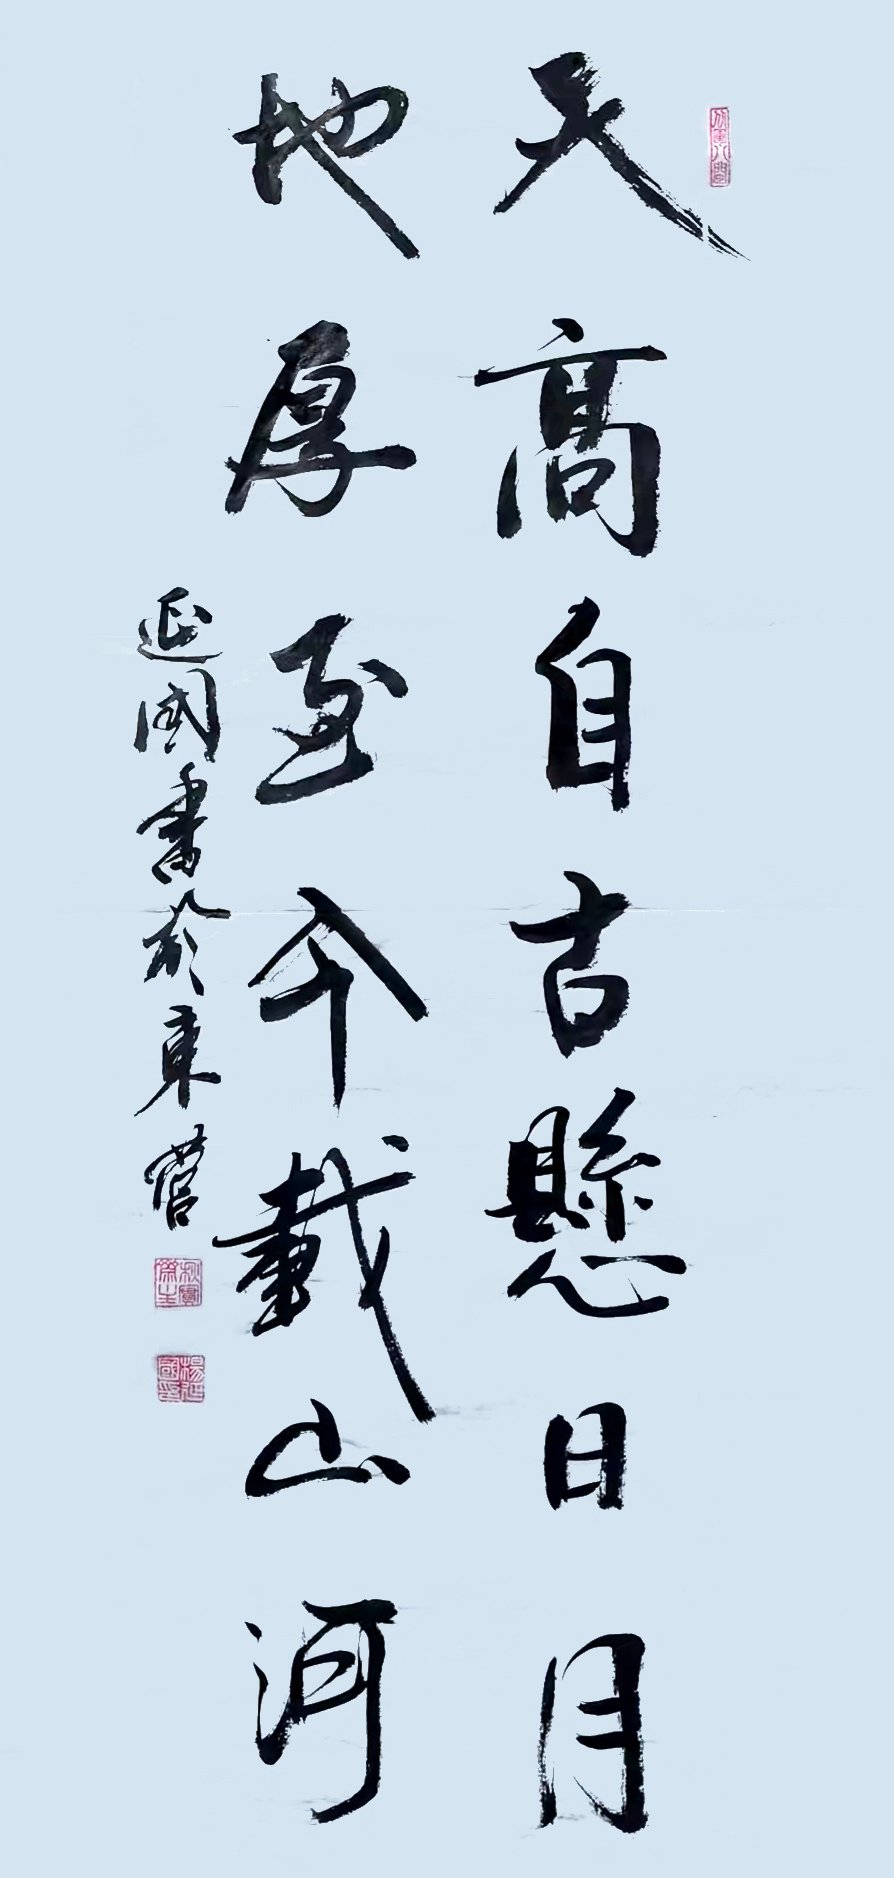 天高自古懸日月
地厚至今載山河
延國書於東營
楊延國印